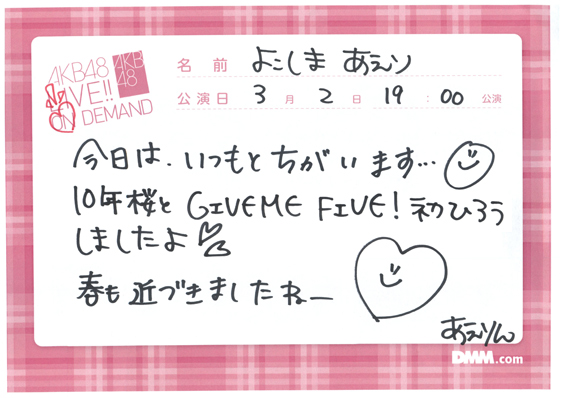 AKB48
LIVE!!
ON DEMAND
AKB
48
名前 よこしま あえり
公演日 3月 2日 19:00 公演
今日は、いつもとちがいます…
10年桜と GIVE ME FIVE! 初ひろう
しましたよ
春も近づきましたねー
あえりん
DMM.com